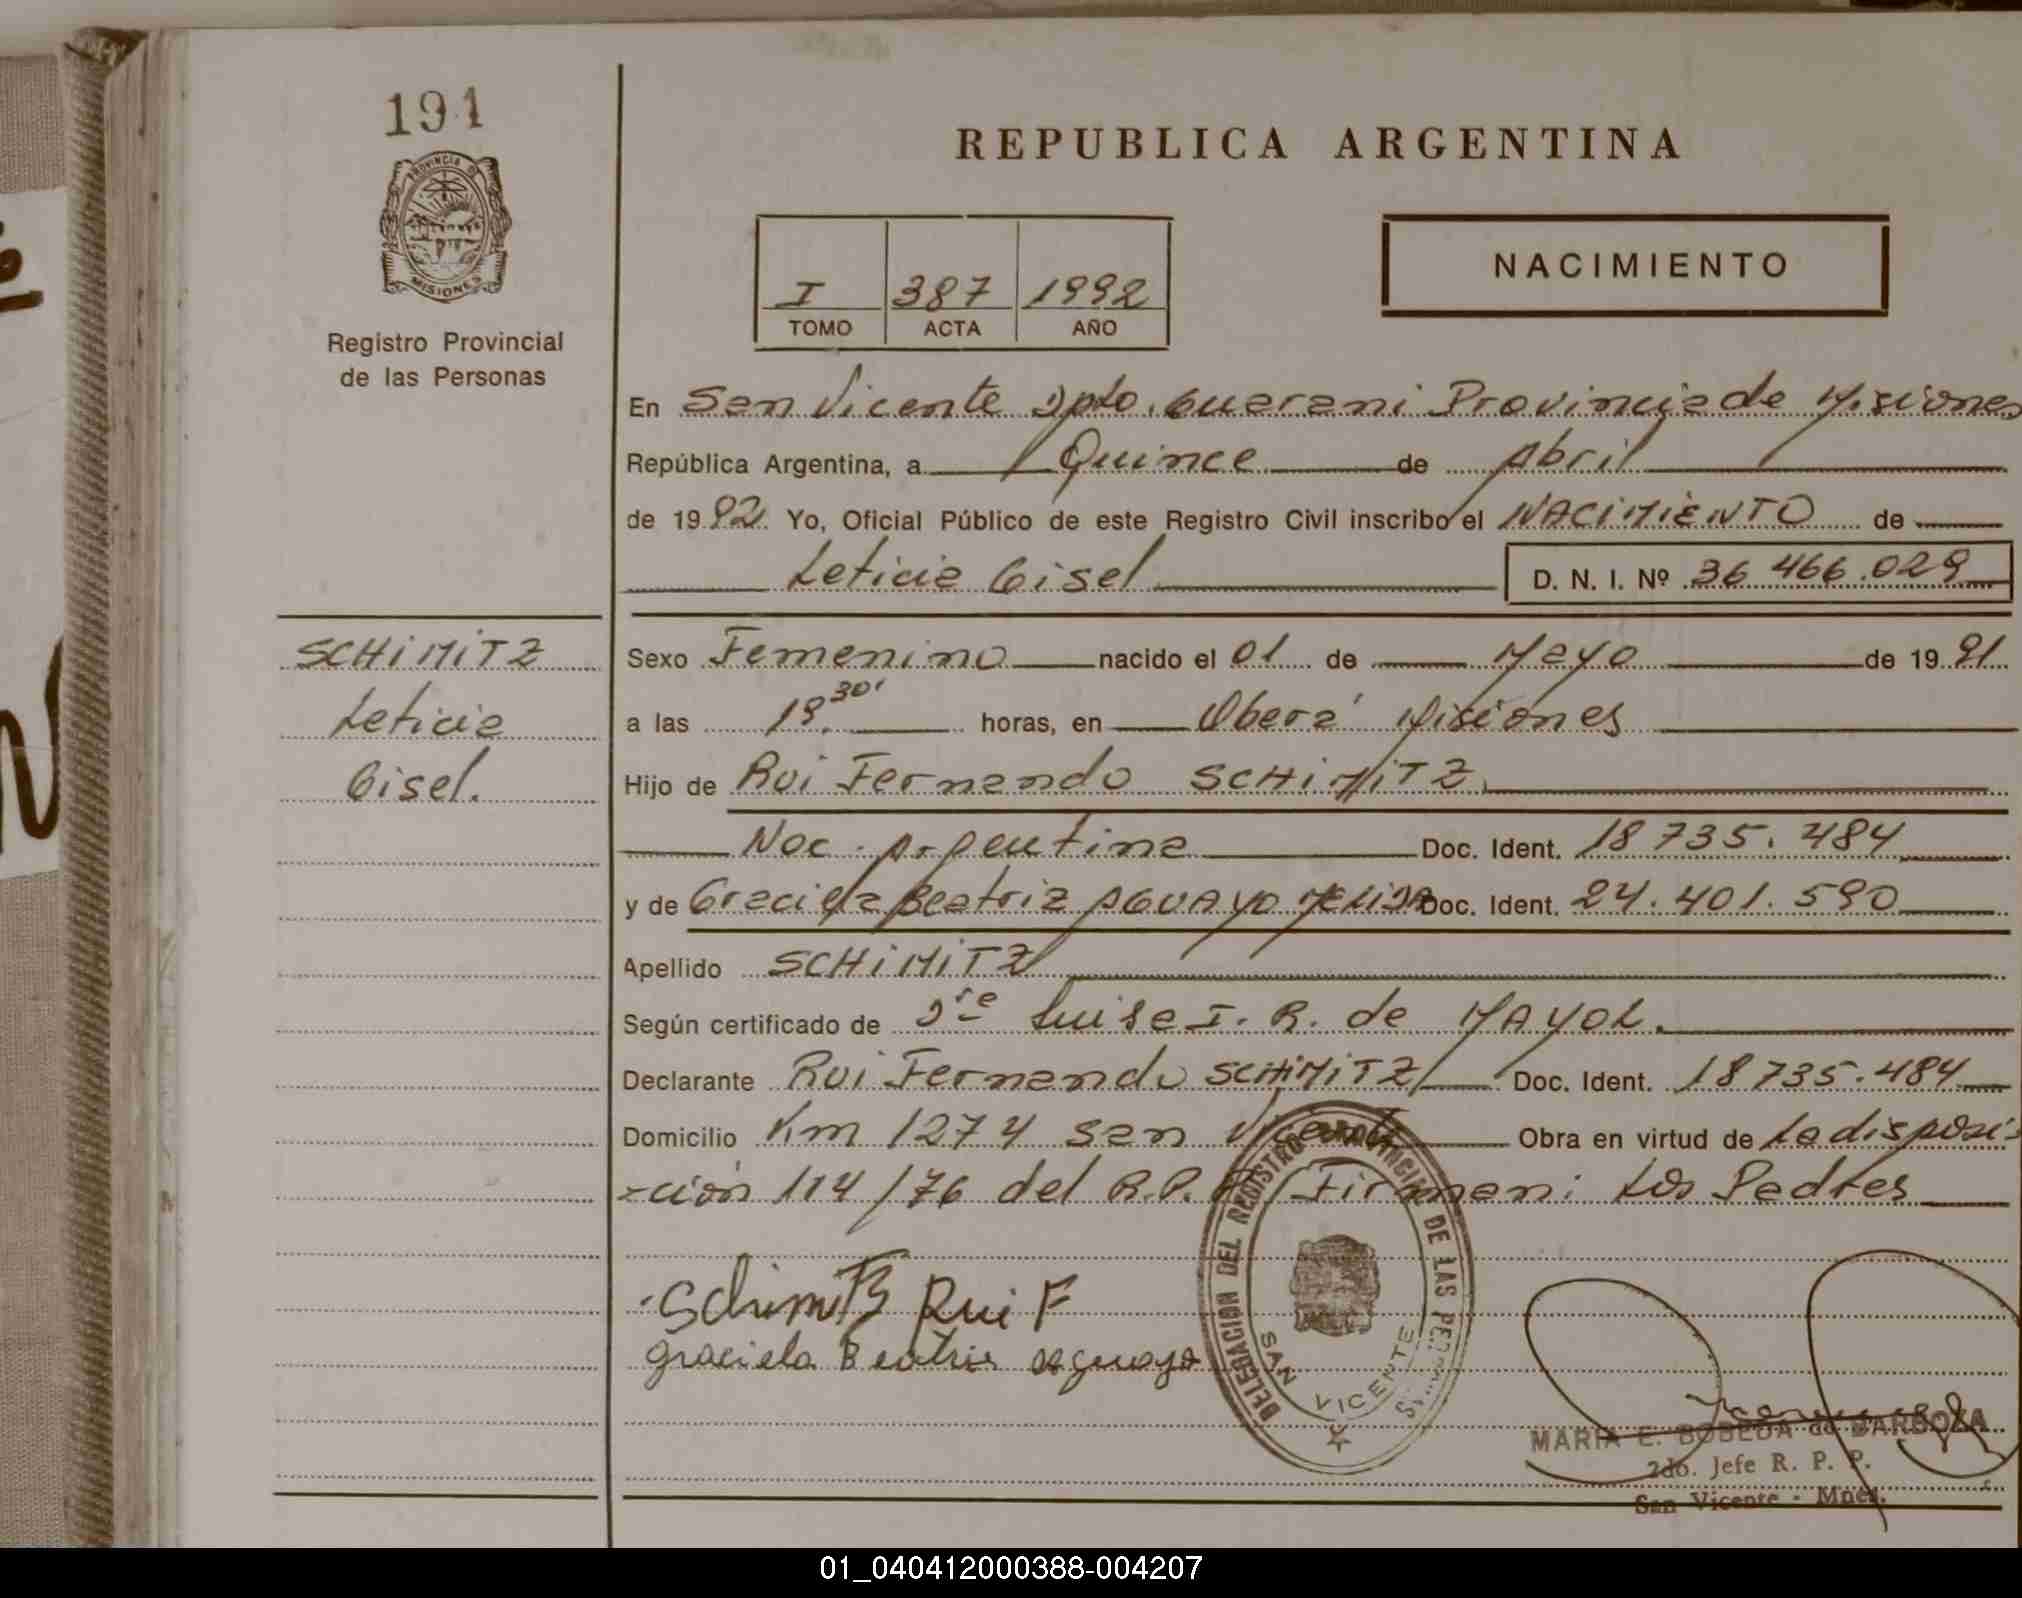 191
REPUBLICA ARGENTINA
PROVINCIA DE
MISIONES
NACIMIENTO
I 387 1992
TOMO ACTA AÑO
Registro Provincial
de las Personas
En San Vicente Dpto. Guarani Provincia de Misiones
República Argentina, a Quince de Abril
de 1992. Yo, Oficial Público de este Registro Civil inscribo el NACIMIENTO de
Leticia Gisel D. N. I. Nº 36 466.029
SCHIMITZ
Leticia
Gisel.
Sexo Femenino nacido el 01 de Mayo de 1991
a las 19.30' horas, en Oberá Misiones
Hijo de Rui Fernando SCHIMITZ
Nac. Argentina Doc. Ident. 18 735.484
y de Graciela Beatriz AGUAYO Doc. Ident. 24.401.590
Apellido SCHIMITZ
Según certificado de Dra Luisa I. R. de MAYOL.
Declarante Rui Fernando SCHIMITZ Doc. Ident. 18 735.484
Domicilio Km 1274 San Vicente Obra en virtud de La disposi=
=ción 114/76 del R.P.P. Firman: Los Padres
Schimitz Rui F
Graciela Beatris aguayo
DELEGACION DEL REGISTRO PROVINCIAL DE LAS PERSONAS
SAN VICENTE
MARIA E. BOBEDA de BARBOZA
2do. Jefe R. P. P.
San Vicente - Mnes.
01_040412000388-004207